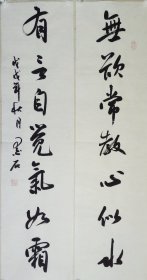 無欲常教心似水
有言自覺氣如霜
戊戌年秋月墨石